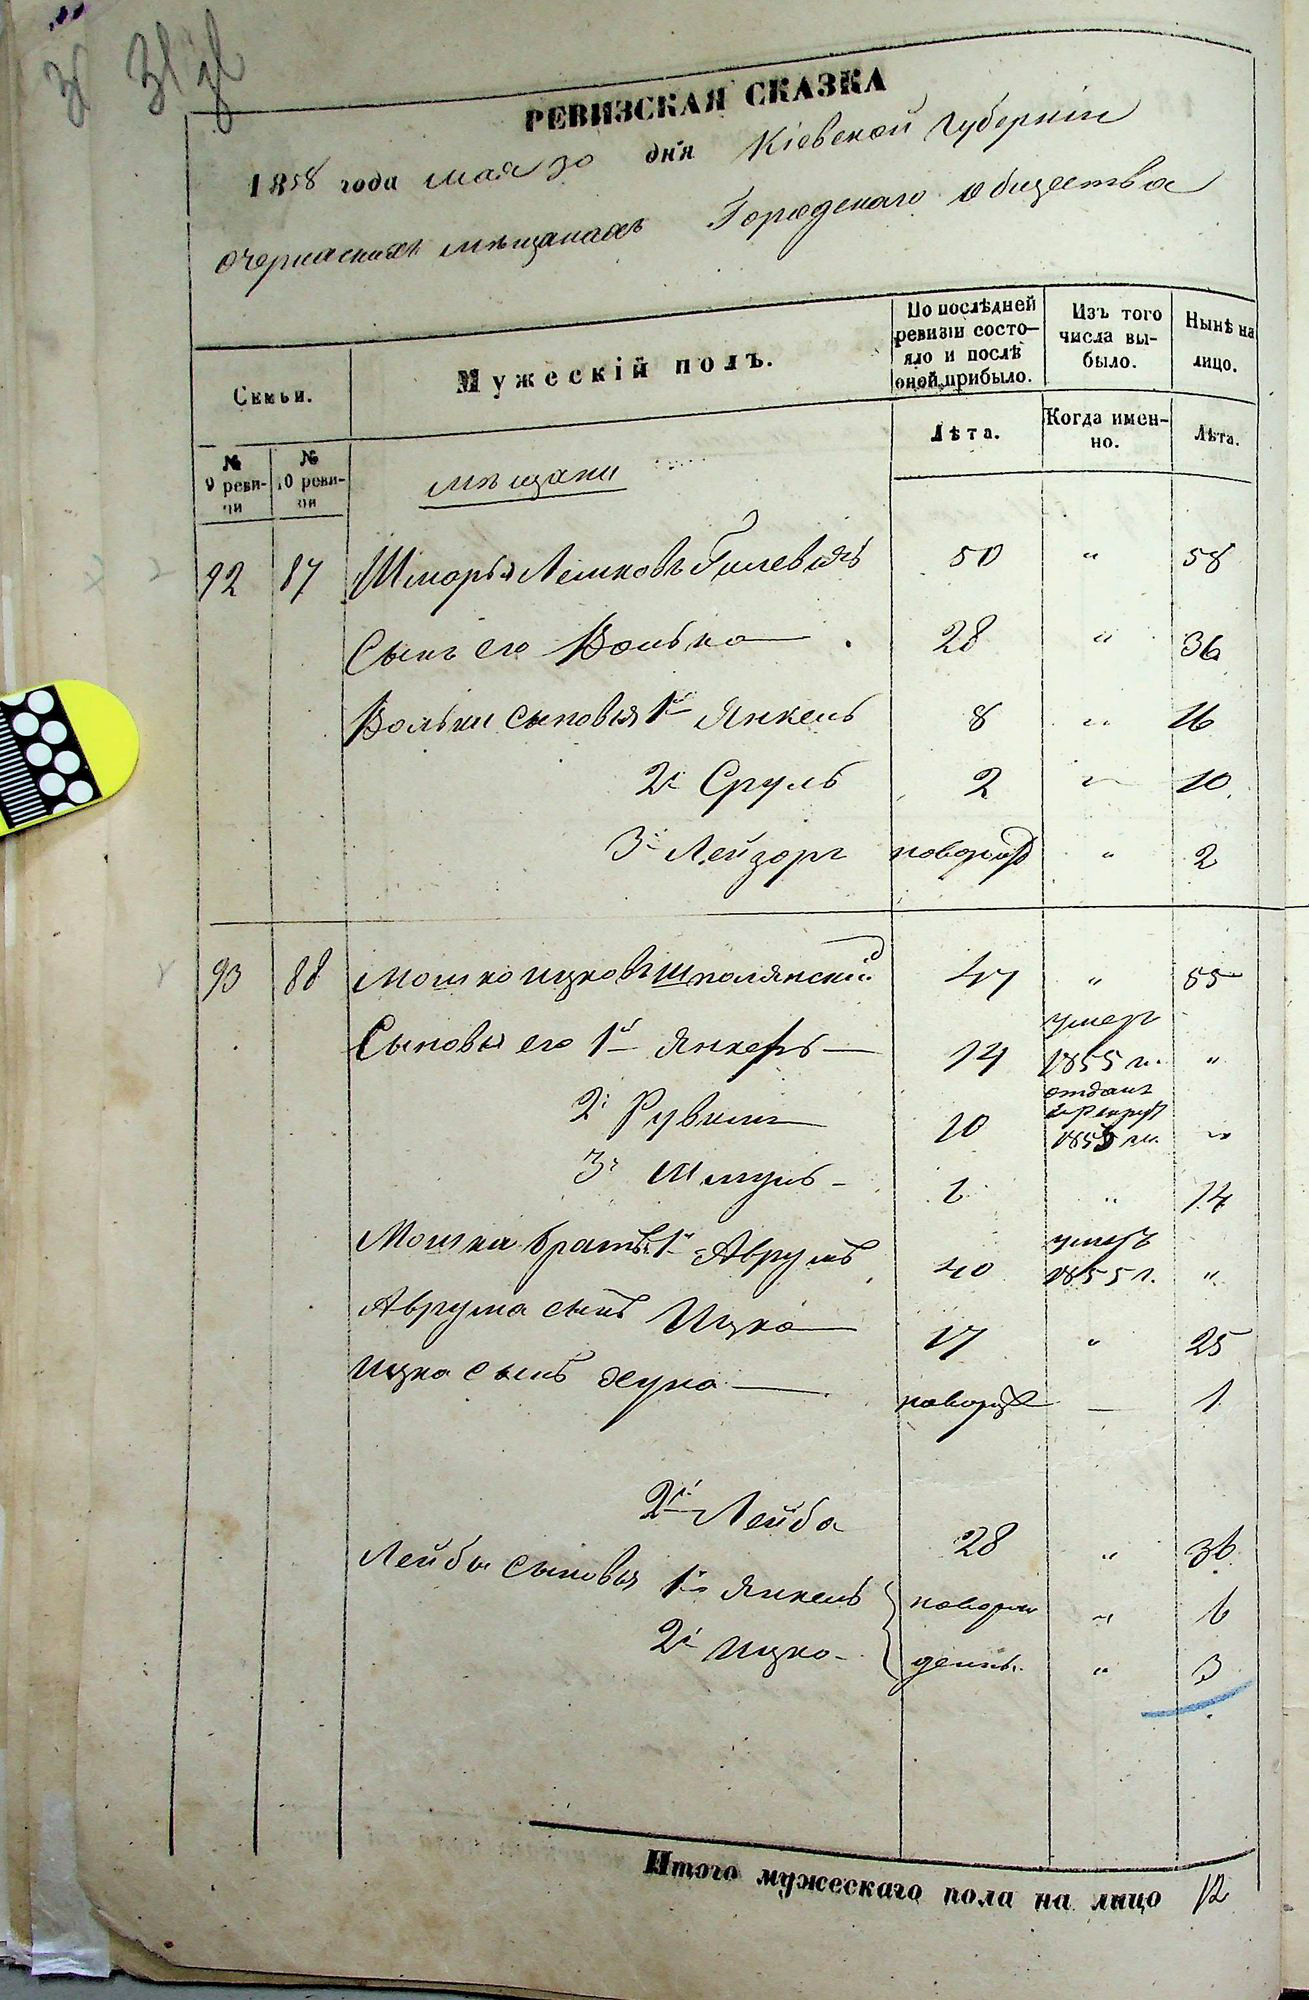 РЕВИЗСКАЯ СКАЗКА
1858 года мая 30 дня Кіевской губерніи
о черкаскихъ мѣщанахъ Городскаго общества
Семьи.
Мужескій полъ.
По послѣдней ревизіи состо-
яло и послѣ оной прибыло.
Изъ того числа вы-
было.
Нынѣ на лицо.
№ 9 реви-
зіи
№ 10 реви-
зіи
Лѣта.
Когда имен-
но.
Лѣта.
мѣщани
92 87 Шмарья Лейковъ 50 " 58
Сынъ его Волько 28 " 36
Вольки сыновья 1й Янкель 8 " 16
2й Сруль 2 " 10
3й Лейзоръ новорожд 2
93 88 Мошко Ицковъ Шполянскій 47 " 55
Сыновья его 1й Янкель 14 умеръ 1855 г. "
2й Рувинъ 10 отданъ в рекрут 1855 г. "
3й Шмуль 6 " 14
Мошка братья 1й Аврумъ 40 умеръ 1855 г. "
Аврума сынъ Ицко 17 " 25
Ицка сынъ Хуна новорожд — 1
2й Лейба 28 " 36
Лейбы сыновья 1й Янкель новорож " 6
2й Ицко денны. " 3
Итого мужескаго пола на лицо 12